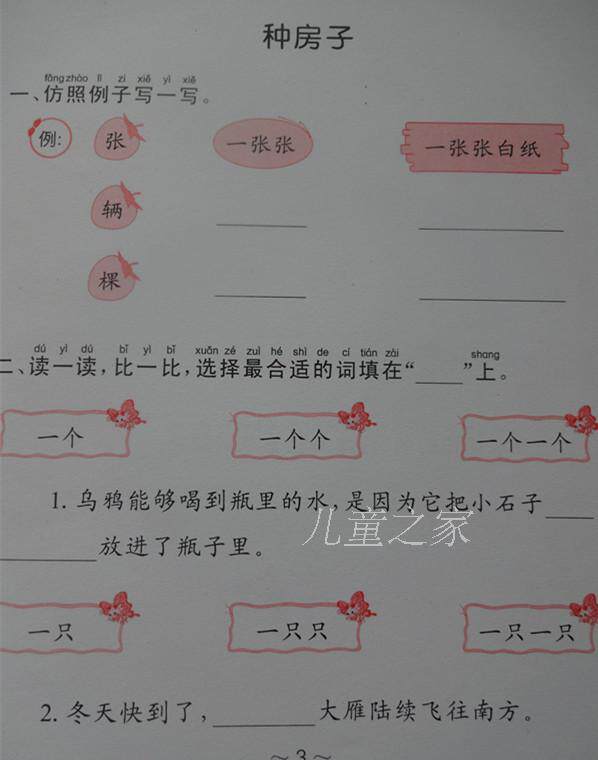 种房子
fǎng zhào lì zi xiě yì xiě
一、仿照例子写一写。
例: 张 一张张 一张张白纸
辆
棵
dú yì dú bǐ yì bǐ xuǎn zé zuì hé shì de cí tián zài shang
二、读一读,比一比,选择最合适的词填在“____”上。
一个 一个个 一个一个
1. 乌鸦能够喝到瓶里的水,是因为它把小石子____
________放进了瓶子里。
儿童之家
一只 一只只 一只一只
2. 冬天快到了,________大雁陆续飞往南方。
~ 3 ~